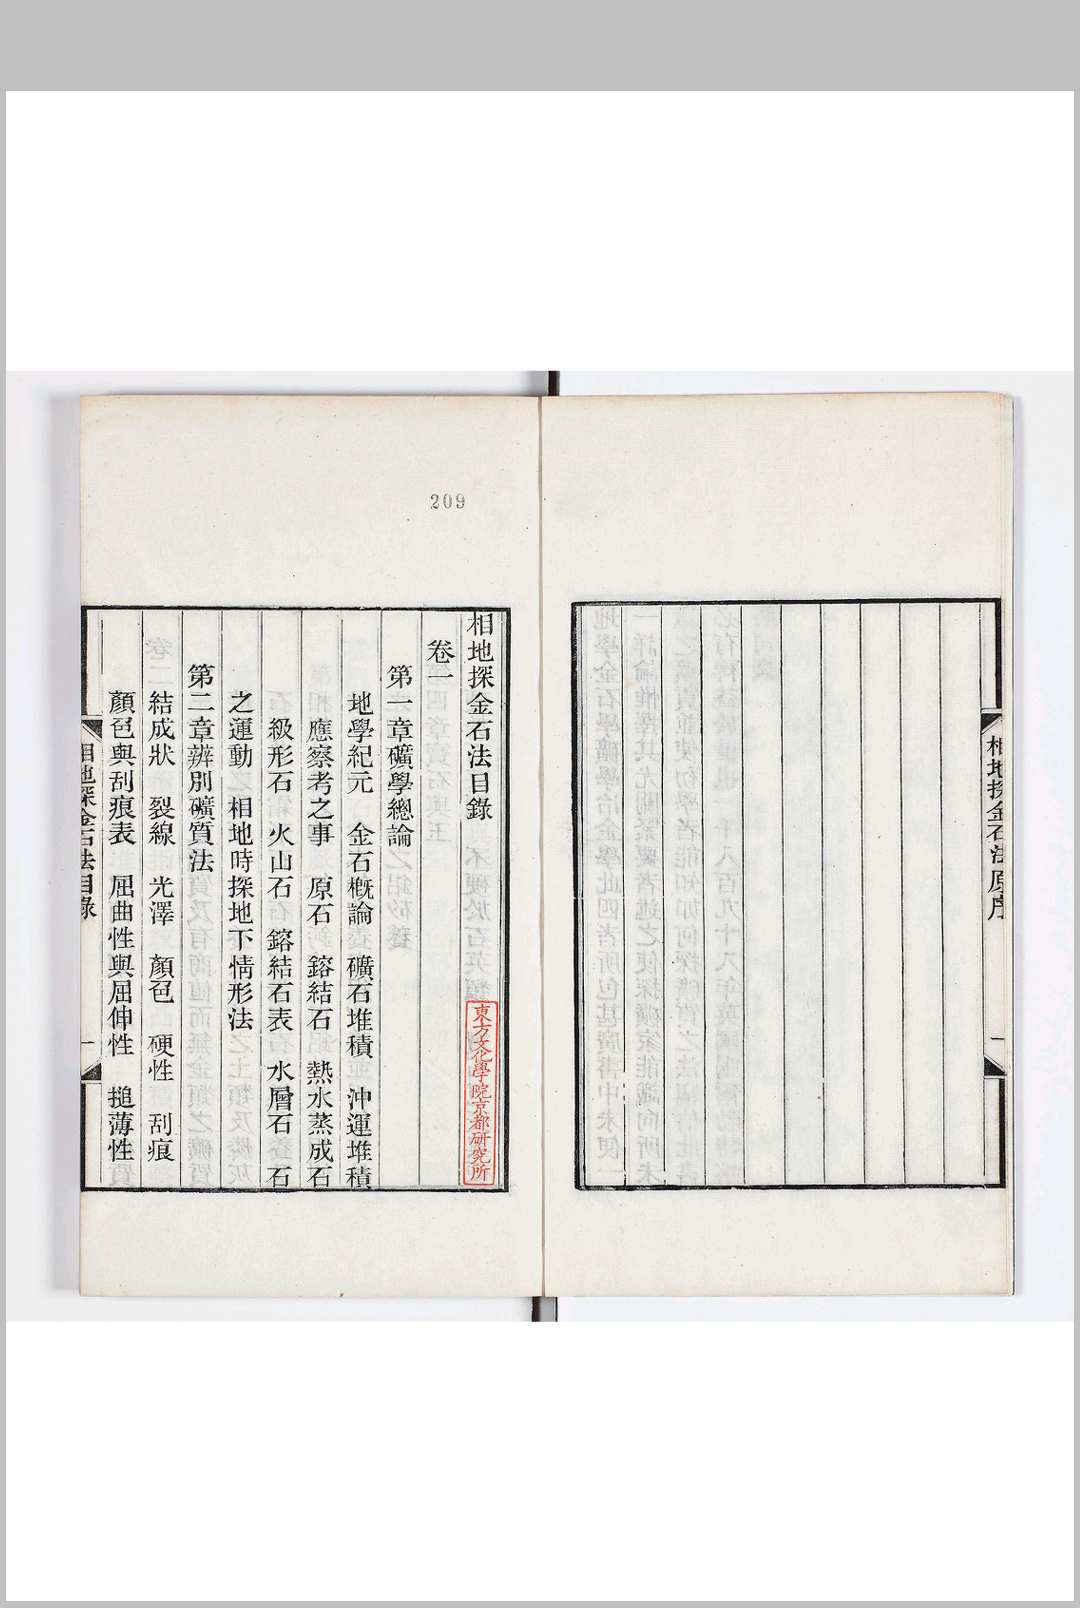 相地探金石法原序
一
209
相地探金石法目錄
東方文化學院京都研究所
卷一
第一章礦學總論
地學紀元　金石概論　礦石堆積　沖運堆積
應察考之事　原石　鎔結石　熱水蒸成石
級形石　火山石　鎔結石表　水層石　石
之運動　相地時探地下情形法
第二章辨別礦質法
結成狀　裂線　光澤　顏色　硬性　刮痕
顏色與刮痕表　屈曲性與屈伸性　搥薄性
相地探金石法目錄
一